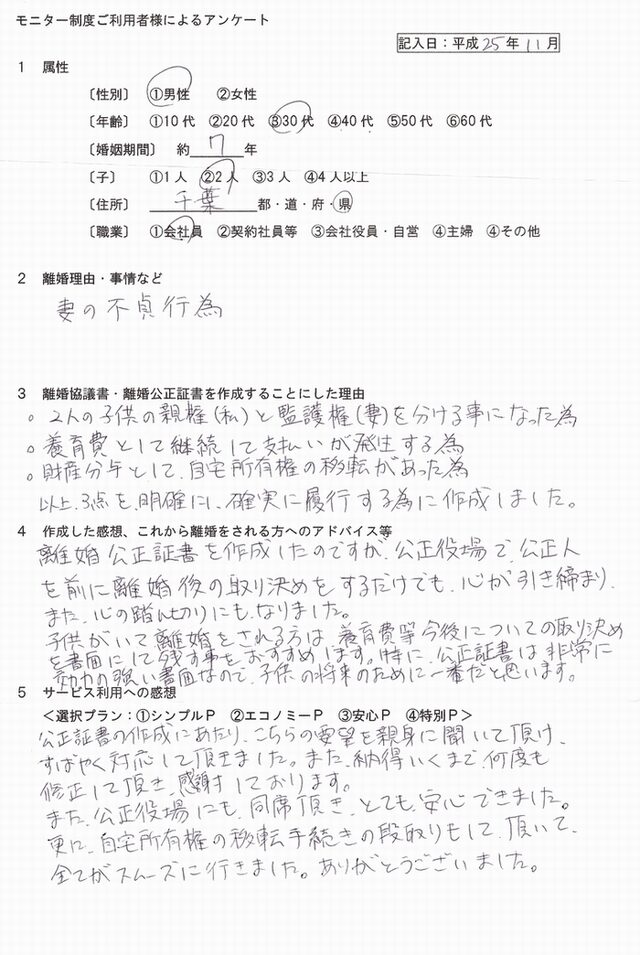 モニター制度ご利用者様によるアンケート
記入日：平成 25年 11月
1 属性
〔性別〕 ①男性 ②女性
〔年齢〕 ①10代 ②20代 ③30代 ④40代 ⑤50代 ⑥60代
〔婚姻期間〕 約 7 年
〔子〕 ①1人 ②2人 ③3人 ④4人以上
〔住所〕 千葉 都・道・府・県
〔職業〕 ①会社員 ②契約社員等 ③会社役員・自営 ④主婦 ④その他
2 離婚理由・事情など
妻の不貞行為
3 離婚協議書・離婚公正証書を作成することにした理由
。2人の子供の親権(私)と監護権(妻)を分ける事になった為
。養育費として継続して支払いが発生する為
。財産分与として、自宅所有権の移転があった為
以上、3点を、明確にし、確実に履行する為に作成しました。
4 作成した感想、これから離婚をされる方へのアドバイス等
離婚公正証書を作成したのですが、公正役場で、公正人
を前に離婚後の取り決めをするだけでも、心が引き締まり、
また、心の踏ん切りにも、なりました。
子供がいて離婚をされる方は、養育費等今後についての取り決め
を書面にして残す事をおすすめします。特に、公正証書は非常に
効力の強い書面なので、子供の将来のために一番だと思います。
5 サービス利用への感想
＜選択プラン：①シンプルP ②エコノミーP ③安心P ④特別P＞
公正証書の作成にあたり、こちらの要望を親身に聞いて頂け、
すばやく対応して頂きました。また、納得いくまで何度も
修正して頂き、感謝しております。
また、公正役場にも、同席頂き、とても、安心できました。
更に、自宅所有権の移転手続きの段取りもして、頂いて、
全てがスムーズに行きました。ありがとうございました。